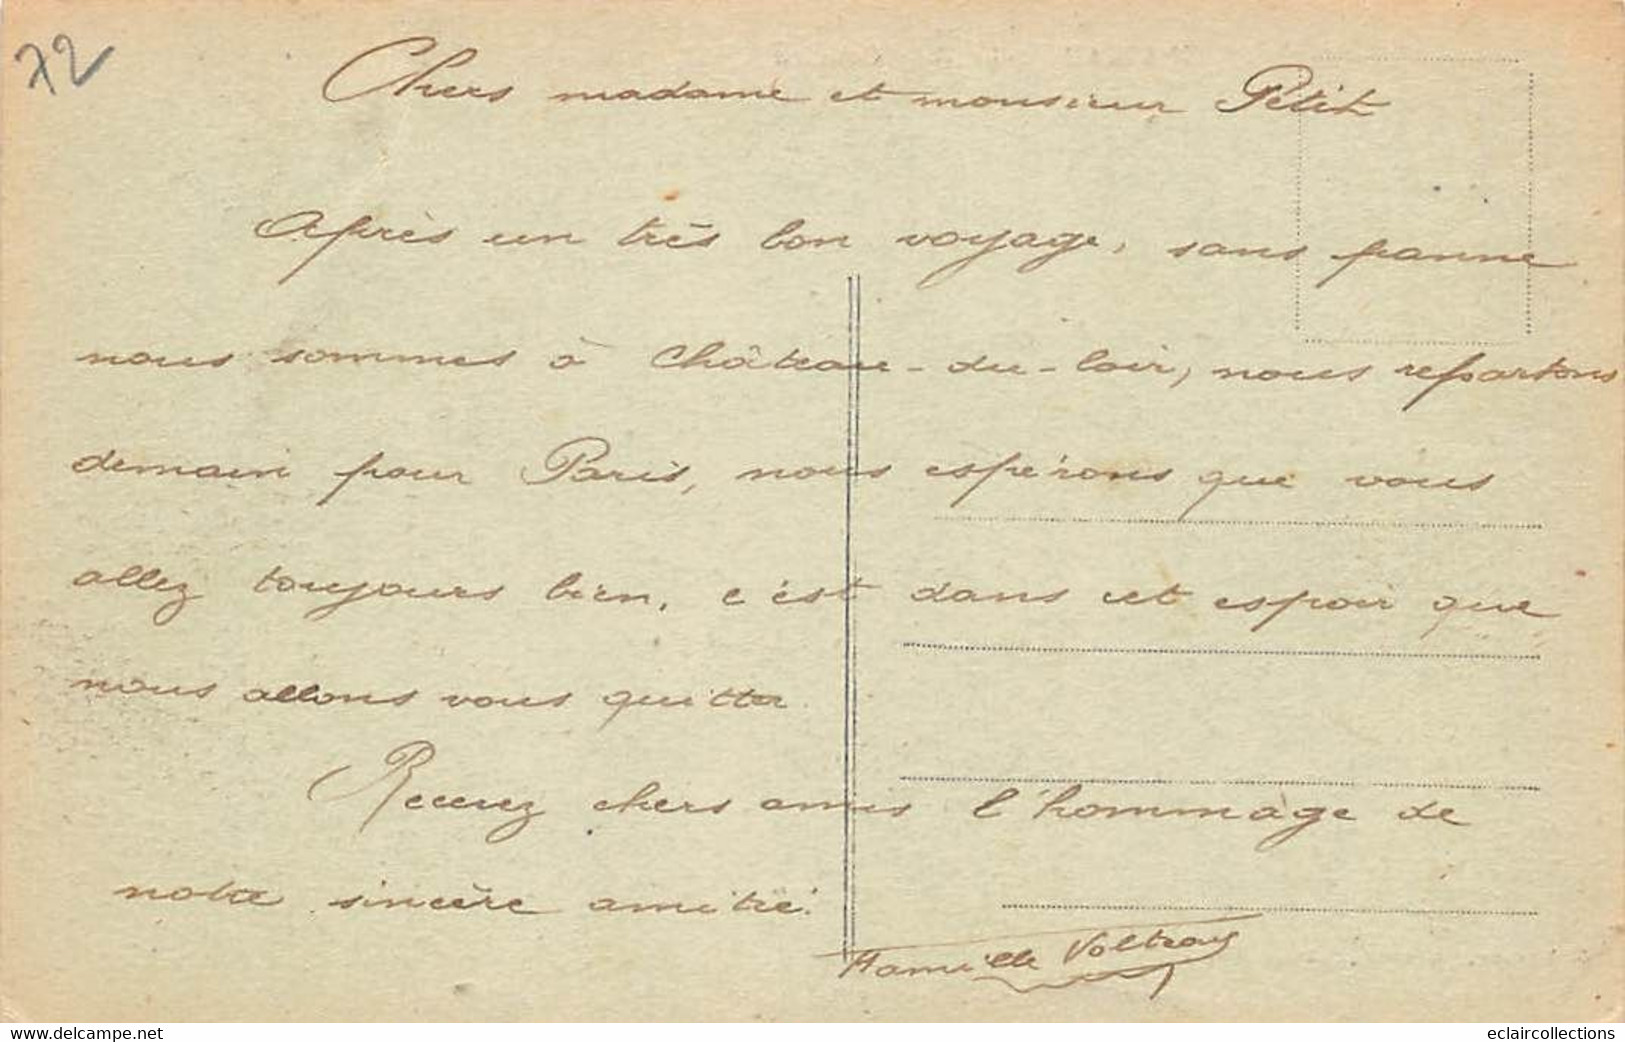 72
Chers madame et monsieur Petit
Après un très bon voyage, sans panne
nous sommes à Château-du-loir, nous repartons
demain pour Paris, nous espérons que vous
allez toujours bien, c'est dans cet espoir que
nous allons vous quitter.
Recevez chers amis l'hommage de
notre sincère amitié.
Famille
www.delcampe.net
eclaircollections